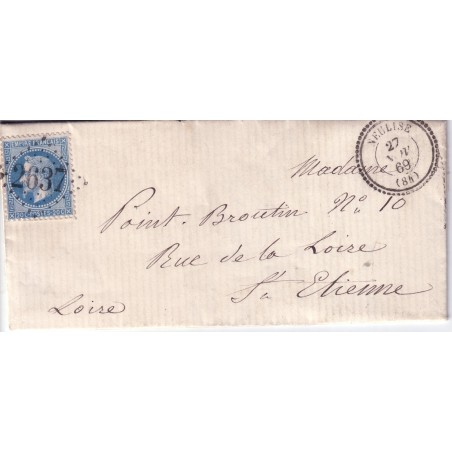 EMPIRE FRANÇAIS
2637
20 C POSTES 20 C
NERLISE
27
69
(88)
Madame
Point-Broutin No 10
Rue de la Loire
St Etienne
Loire